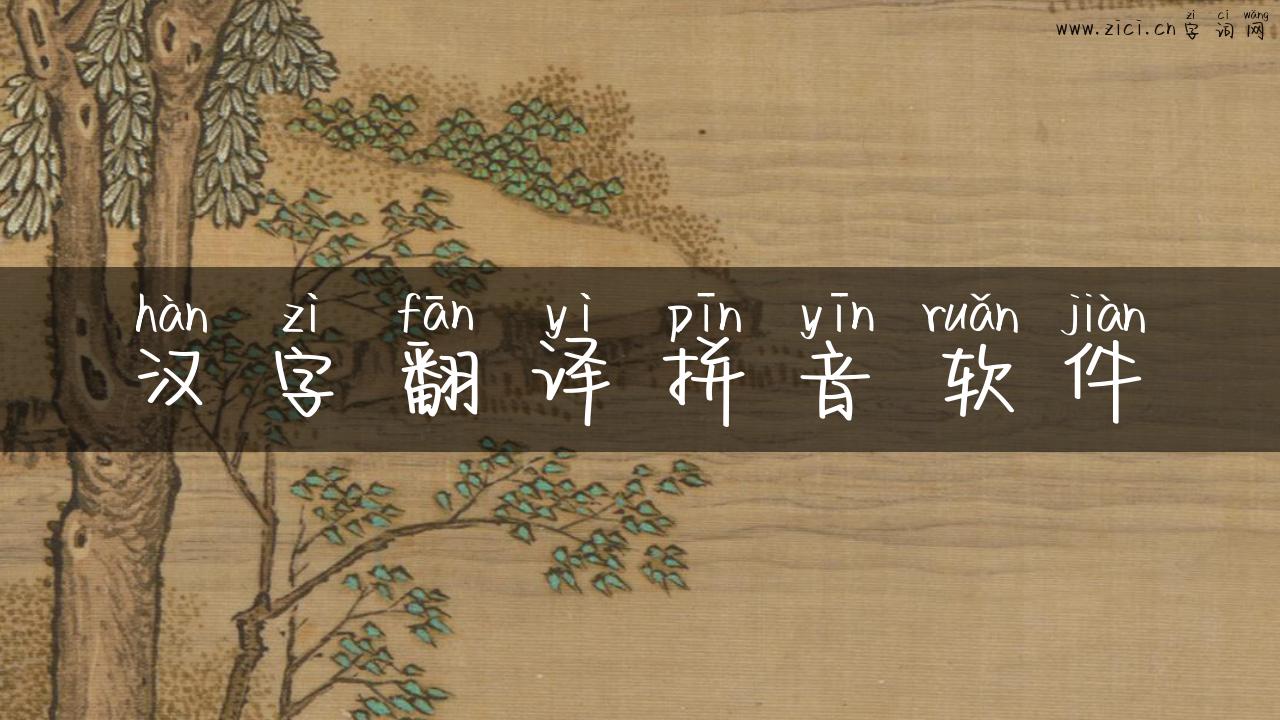 zì cí wǎng
www.zici.cn 字词网
hàn zì fān yì pīn yīn ruǎn jiàn
汉字翻译拼音软件